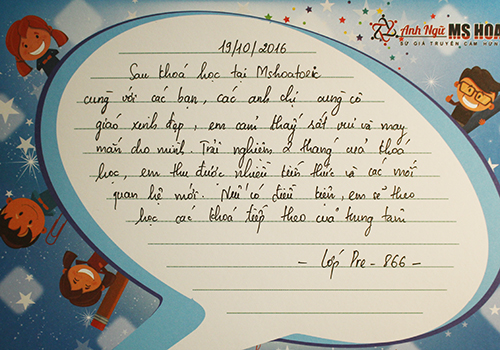 Anh Ngữ MS HOA
SỨ GIẢ TRUYỀN CẢM HỨNG
19/10/2016
Sau khoá học tại Mshoatoeic
cùng với các bạn, các anh chị cùng cô
giáo xinh đẹp, em cảm thấy rất vui và may
mắn cho mình. Trải nghiệm 2 tháng của khoá
học, em thu được nhiều kiến thức và các mối
quan hệ mới. Nếu có điều kiện, em sẽ theo
học các khoá tiếp theo của trung tâm
- Lớp Pre - 866 -